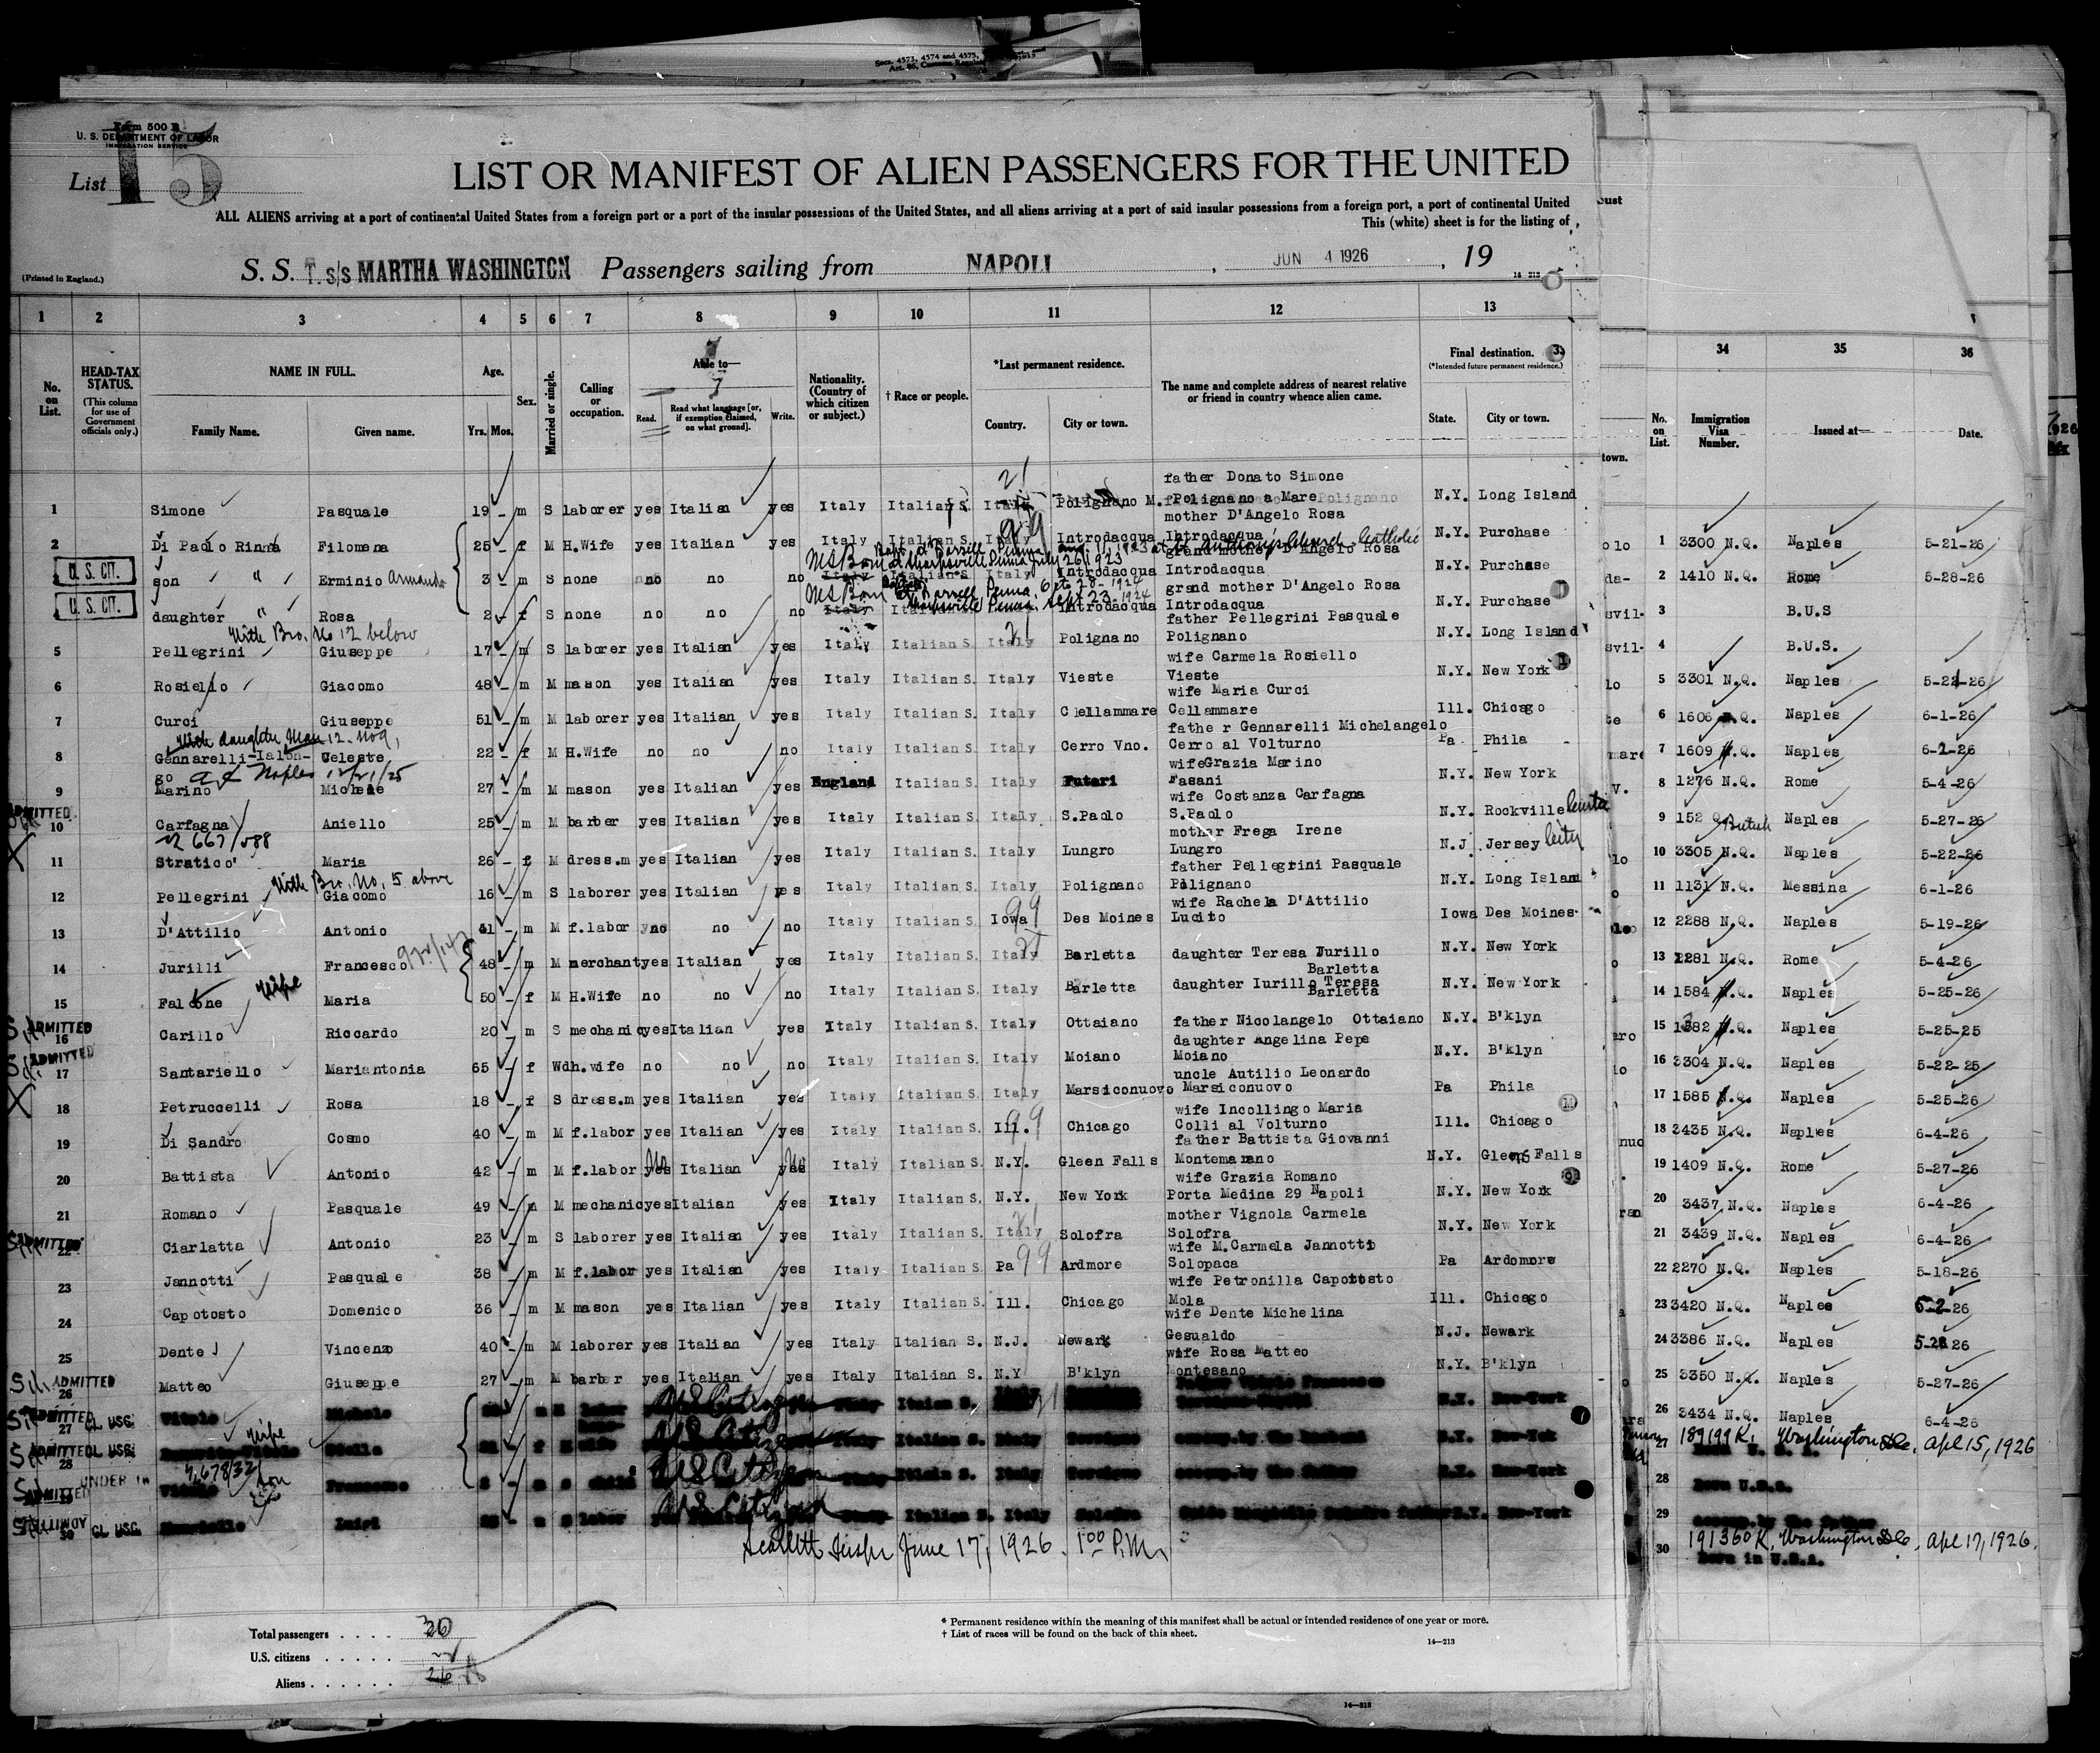 Secs. 4573, 4574 and 4575,
Form 500 B
U. S. DEPARTMENT OF LABOR
IMMIGRATION SERVICE
List 15
LIST OR MANIFEST OF ALIEN PASSENGERS FOR THE UNITED
ALL ALIENS arriving at a port of continental United States from a foreign port or a port of the insular possessions of the United States, and all aliens arriving at a port of said insular possessions from a foreign port, a port of continental United
This (white) sheet is for the listing of
(Printed in England.)
S. S. T. s/s MARTHA WASHINGTON Passengers sailing from NAPOLI, JUN 4 1926, 19
14-213
1 2 3 4 5 6 7 8 9 10 11 12 13 34 35 36
No. on List. HEAD-TAX STATUS. (This column for use of Government officials only.) NAME IN FULL. Family Name. Given name. Age. Yrs. Mos. Sex. Married or single. Calling or occupation. Able to— Read. Read what language [or, if exemption claimed, on what ground]. Write. Nationality. (Country of which citizen or subject.) † Race or people. *Last permanent residence. Country. City or town. The name and complete address of nearest relative or friend in country whence alien came. Final destination. (*Intended future permanent residence.) State. City or town. No. on List. Immigration Visa Number. Issued at— Date.
father Donato Simone
1 Simone Pasquale 19 - m S laborer yes Italian yes Italy Italian S. Italy Polignano M. Polignano a Mare N.Y. Long Island
mother D'Angelo Rosa
2 Di Paolo Rinna Filomena 25 - f M H.Wife yes Italian yes Italy Italian S. Italy Introdacqua Introdacqua N.Y. Purchase 1 3300 N.Q. Naples 5-21-26
grand mother D'Angelo Rosa
U. S. CIT. son " Erminio Armando 3 - m S none no no no Italy Italian S. Italy Introdacqua Introdacqua N.Y. Purchase 2 1410 N.Q. Rome 5-28-26
grand mother D'Angelo Rosa
U. S. CIT. daughter " Rosa 2 - f S none no no no Italy Italian S. Introdacqua Introdacqua N.Y. Purchase 3 B.U.S
With Bro. No 12 below
father Pellegrini Pasquale
5 Pellegrini Giuseppe 17 - m S laborer yes Italian yes Italy Italian S. Italy Polignano Polignano N.Y. Long Island 4 B.U.S.
wife Carmela Rosiello
6 Rosiello Giacomo 48 - m M mason yes Italian yes Italy Italian S. Italy Vieste Vieste N.Y. New York 5 3301 N.Q. Naples 5-22-26
wife Maria Curci
7 Curci Giuseppe 51 - m M laborer yes Italian yes Italy Italian S. Italy Cellammare Cellammare Ill. Chicago 6 1606 N.Q. Naples 6-1-26
father Gennarelli Michelangelo
8 Gennarelli-Ialon- Celeste 22 - f M H.Wife no no no Italy Italian S. Italy Cerro Vno. Cerro al Volturno Pa Phila 7 1609 N.Q. Naples
go
wife Grazia Marino
9 Marino Michele 27 - m M mason yes Italian yes England Italian S. Italy Fasani N.Y. New York 8 1276 N.Q. Rome 5-4-26
wife Costanza Carfagna
ADMITTED 10 Carfagna Aniello 25 - m M barber yes Italian yes Italy Italian S. Italy S.Paolo S.Paolo N.Y. Rockville 9 152 Q Naples 5-27-26
mother Frega Irene
11 Stratico' Maria 26 - f M dress.m yes Italian yes Italy Italian S. Italy Lungro Lungro N.J Jersey City 10 3305 N.Q. Naples 5-22-26
With Bro. No. 5 above
father Pellegrini Pasquale
12 Pellegrini Giacomo 16 - m S laborer yes Italian yes Italy Italian S. Italy Polignano Polignano N.Y. Long Island 11 1131 N.Q. Messina 6-1-26
wife Rachela D'Attilio
13 D'Attilio Antonio 41 - m M f.labor no no no Italy Italian S. Iowa Des Moines Lucito Iowa Des Moines 12 2288 N.Q. Naples 5-19-26
14 Jurilli Francesco 48 - m M merchant yes Italian yes Italy Italian S. Italy Barletta daughter Teresa Jurillo N.Y. New York 13 2281 N.Q. Rome 5-4-26
Barletta
15 Falcone wife Maria 50 - f M H.Wife no no no Italy Italian S. Italy Barletta daughter Iurillo Teresa N.Y. New York 14 1584 N.Q. Naples 5-25-26
Barletta
ADMITTED 16 Carillo Riccardo 20 - m S mechanic yes Italian yes Italy Italian S. Italy Ottaiano father Nicolangelo Ottaiano N.Y. B'klyn 15 1382 N.Q. Naples 5-25-25
daughter Angelina Pepe
ADMITTED 17 Santariello Mariantonia 65 - f Wd h.wife no no no Italy Italian S. Italy Moiano Moiano N.Y. B'klyn 16 3304 N.Q. Naples 5-22-25
uncle Autilio Leonardo
18 Petruccelli Rosa 18 - f S dress.m yes Italian yes Italy Italian S. Italy Marsiconuovo Marsiconuovo Pa Phila 17 1585 N.Q. Naples 5-25-26
wife Incollingo Maria
19 Di Sandro Cosmo 40 - m M f.labor yes Italian yes Italy Italian S. Ill. Chicago Colli al Volturno Ill. Chicago 18 3435 N.Q. Naples 6-4-26
father Battista Giovanni
20 Battista Antonio 42 - m M f.labor yes No Italian yes No Italy Italian S. N.Y. Gleen Falls Montemarano N.Y. Gleens Falls 19 1409 N.Q. Rome 5-27-26
wife Grazia Romano
21 Romano Pasquale 49 - m M mechanic yes Italian yes Italy Italian S. N.Y. New York Porta Medina 29 Napoli N.Y. New York 20 3437 N.Q. Naples 6-4-26
mother Vignola Carmela
ADMITTED 22 Ciarlatta Antonio 23 - m S laborer yes Italian yes Italy Italian S. Italy Solofra Solofra N.Y. New York 21 3439 N.Q. Naples 6-4-26
wife M.Carmela Jannotti
23 Jannotti Pasquale 38 - m M f.labor yes Italian yes Italy Italian S. Pa Ardmore Solopaca Pa Ardomore 22 2270 N.Q. Naples 5-18-26
wife Petronilla Capotosto
24 Capotosto Domenico 36 - m M mason yes Italian yes Italy Italian S. Ill. Chicago Mola Ill. Chicago 23 3420 N.Q. Naples 6-2-26
wife Dente Michelina
25 Dente Vincenzo 40 - m M laborer yes Italian yes Italy Italian S. N.J. Newark Gesualdo N.J. Newark 24 3386 N.Q. Naples 5-28 26
wife Rosa Matteo
ADMITTED 26 Matteo Giuseppe 27 - m M barber yes Italian yes Italy Italian S. N.Y B'klyn Montesano N.Y. B'klyn 25 3350 N.Q. Naples 5-27-26
ADMITTED 27 CL USC. Vitale Michele US Citizen Italian S. N.Y. New-York 26 3434 N.Q. Naples 6-4-26
ADMITTED CL USC. 28 wife US Citizen Italian S. Italy N.Y. New-York 27 189199 K, Washington DC, Apl 15, 1926
ADMITTED 29 Vitale Francesco child US Citizen Italy N.Y. New-York 28 Born U.S.A.
30 CL USC. Luigi US Citizen Italian S. Italy Solofra N.Y. New-York 29 accomp. by the father
June 17, 1926. 1 00 P.M. 30 191360 K, Washington DC, Apl 17, 1926.
Born in U.S.A.
Total passengers . . . . 30
U.S. citizens . . . . .
Aliens . . . . . . 26
* Permanent residence within the meaning of this manifest shall be actual or intended residence of one year or more.
† List of races will be found on the back of this sheet.
14—213
14—213